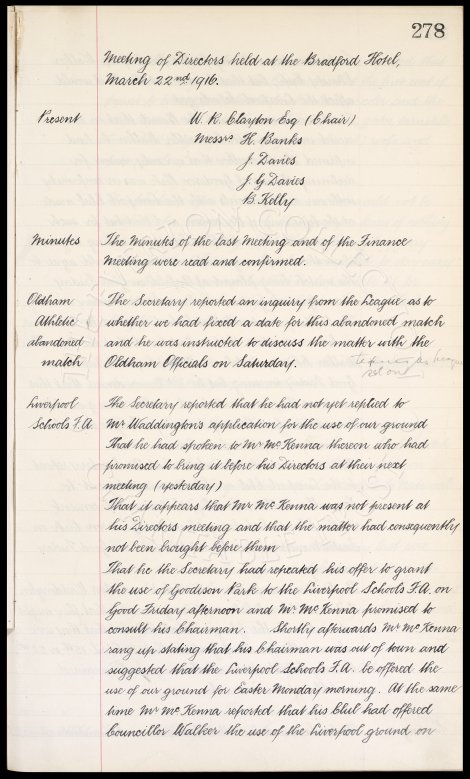 278
Meeting of Directors held at the Bradford Hotel,
March 22nd 1916.
Present W. R. Clayton Esq (Chair)
Messrs H. Banks
J. Davies
J. G Davies
B. Kelly
Minutes The Minutes of the last Meeting and of the Finance
Meeting were read and confirmed.
Oldham The Secretary reported an inquiry from the League as to
Athletic whether we had fixed a date for this abandoned match
abandoned and he was instructed to discuss the matter with the
match Oldham Officials on Saturday.
Liverpool The Secretary reported that he had not yet replied to
Schools F.A. Mr Waddington's application for the use of our ground
That he had spoken to Mr McKenna thereon who had
promised to bring it before his Directors at their next
meeting (yesterday)
That it appears that Mr McKenna was not present at
his Directors meeting and that the matter had consequently
not been brought before them
That he the Secretary had repeated his offer to grant
the use of Goodison Park to the Liverpool Schools F.A. on
Good Friday afternoon and Mr McKenna promised to
consult his Chairman. Shortly afterwards Mr McKenna
rang up stating that his Chairman was out of town and
suggested that the Liverpool Schools F.A. be offered the
use of our ground for Easter Monday morning. At the same
time Mr McKenna reported that his Club had offered
Councillor Walker the use of the Liverpool ground on